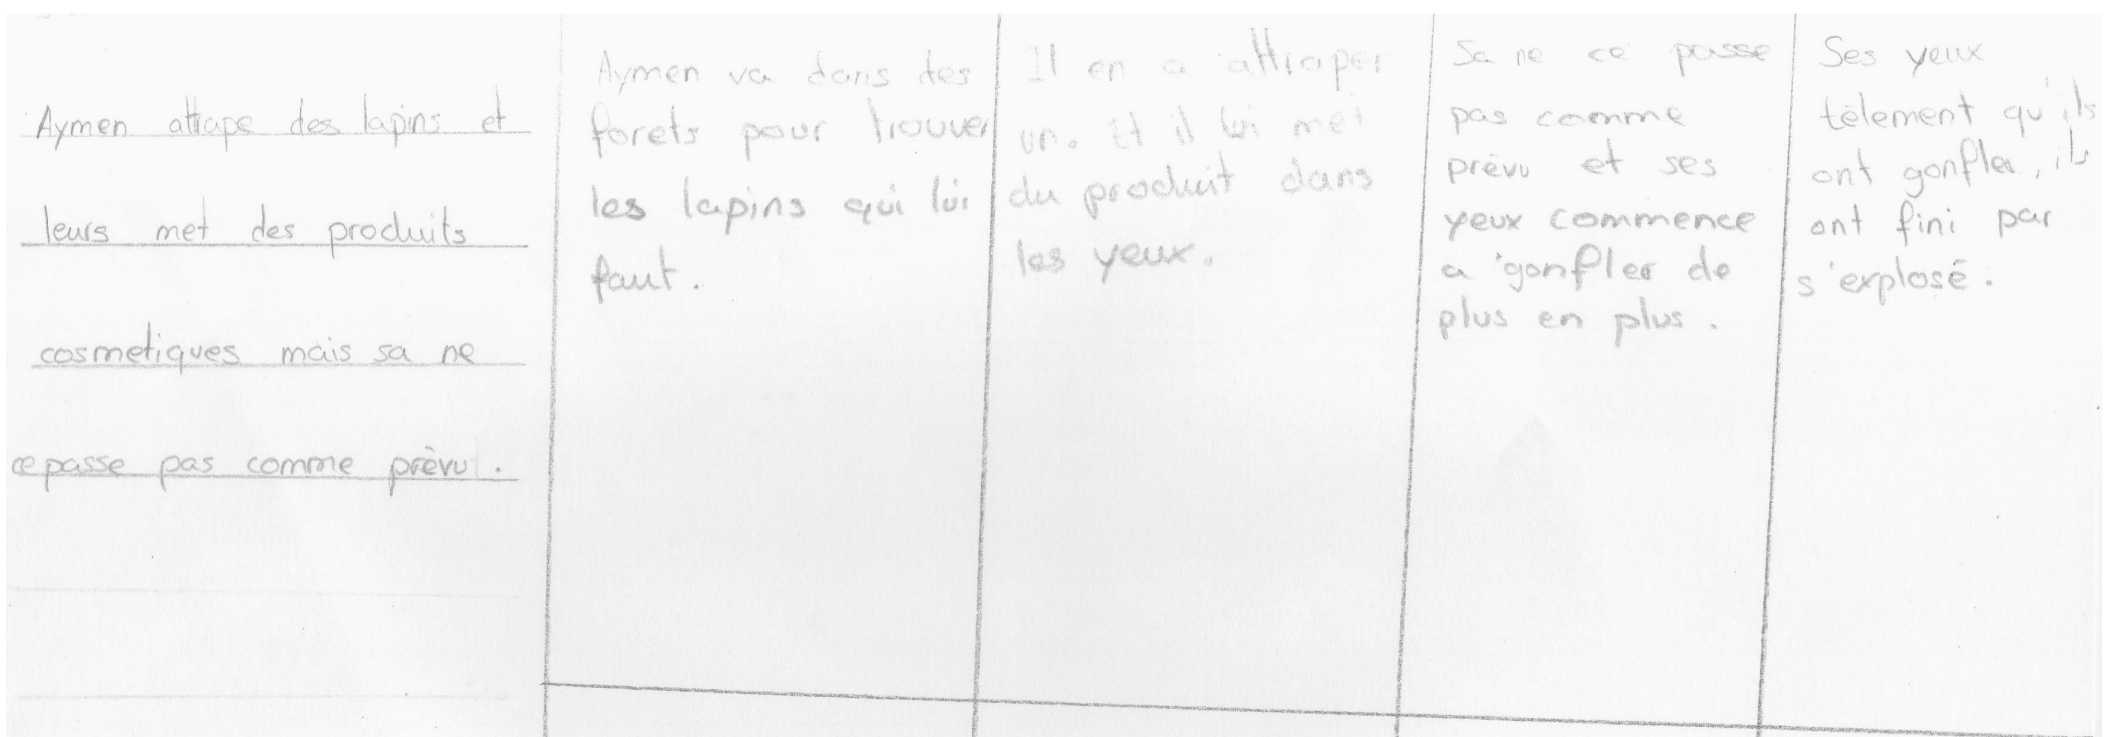 Aymen attrape des lapins et
leurs met des produits
cosmetiques mais sa ne
ce passe pas comme prèvu.
Aymen va dans des
forets pour trouver
les lapins qui lui
faut.
Il en a attraper
un. Et il lui met
du produit dans
les yeux.
Sa ne ce passe
pas comme
prévu et ses
yeux commence
a gonfler de
plus en plus.
Ses yeux
tèlement qu'ils
ont gonfler, ils
ont fini par
s'explosé.